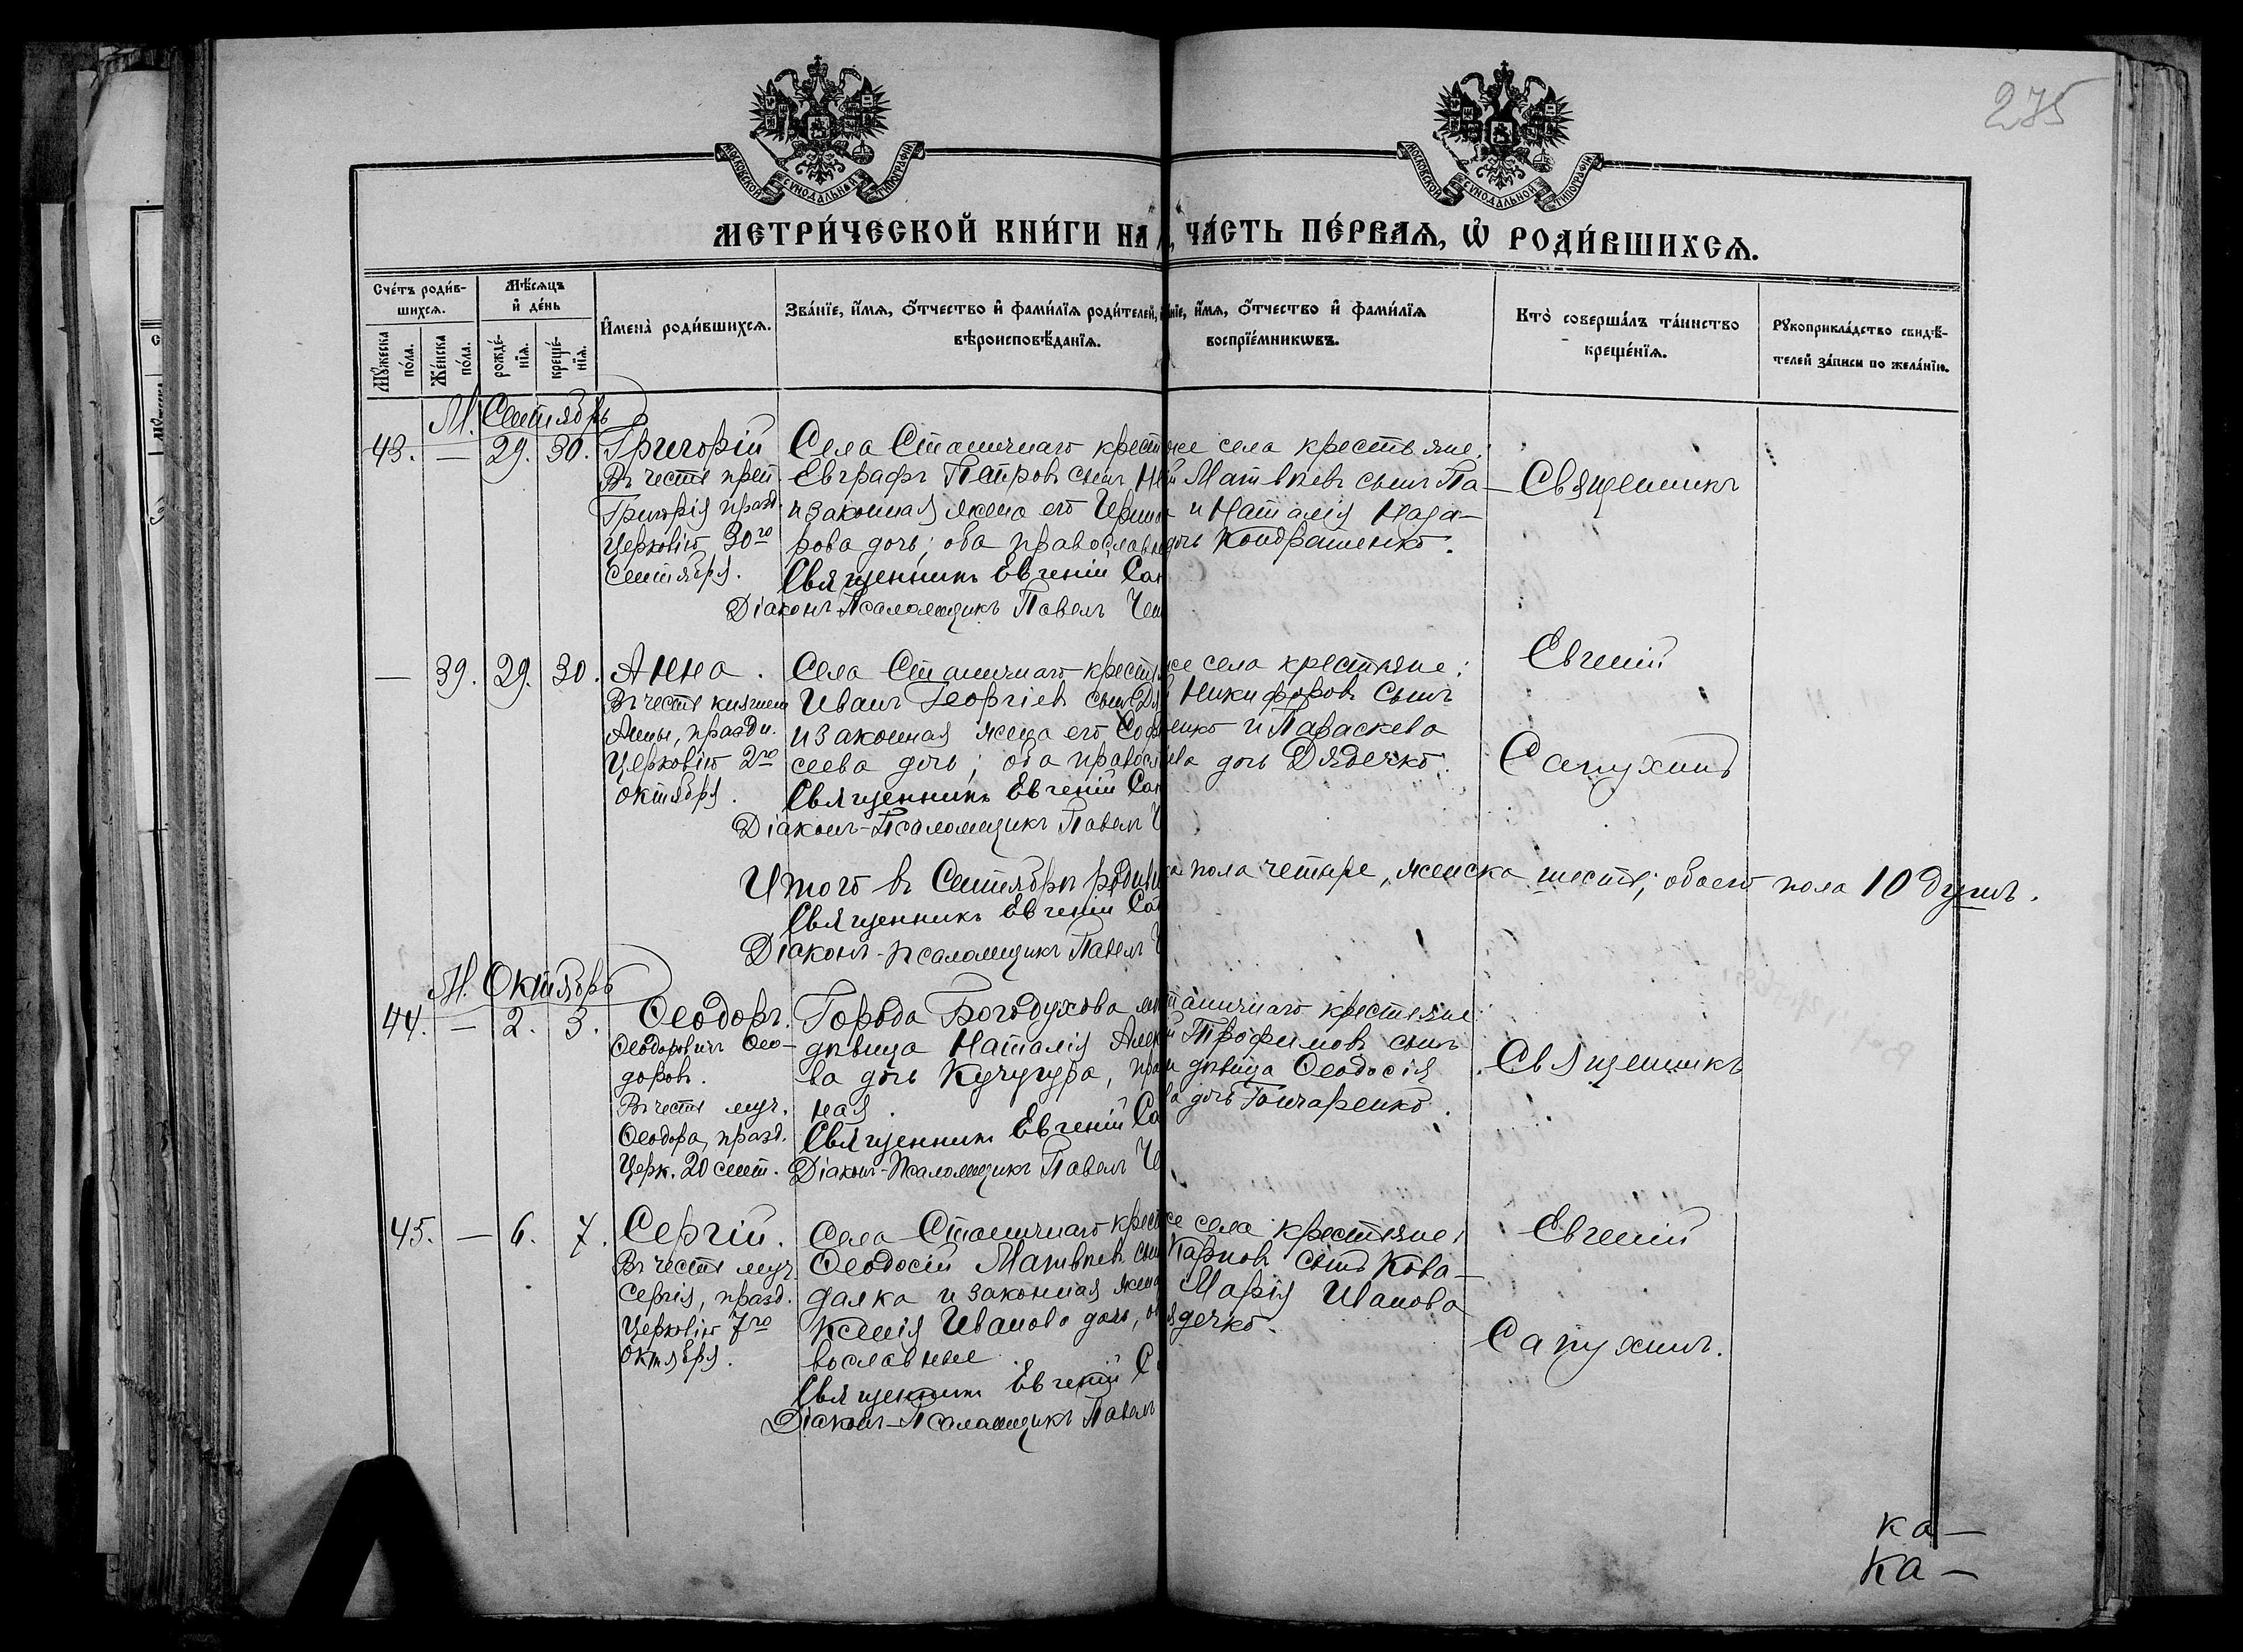 275
МОСКОВСКОЙ СУНОДАЛЬНОЙ ТИПОГРАФИИ
МОСКОВСКОЙ СУНОДАЛЬНОЙ ТИПОГРАФИИ
МЕТРИ́ЧЕСКОЙ КНИ́ГИ НА
, ЧА́СТЬ ПЕ́РВАѦ, Ѡ҆ РОДИ́ВШИХСѦ.
Сче́тъ роди́в-
шихсѧ.
Мꙋ́жеска по́ла.
Же́нска по́ла.
Мѣ́сѧцъ
и҆ де́нь
рожде́-
нїѧ.
креще́-
нїѧ.
И҆мена̀ роди́вшихсѧ.
Зва́нїе, и҆́мѧ, ѻ҆́тчество и҆ фами́лїѧ роди́телей,
вѣроисповѣ́данїѧ.
и҆́мѧ, ѻ҆́тчество и҆ фами́лїѧ
воспрїе́мникѡвъ.
Кто̀ соверша́лъ та́инство
креще́нїѧ.
Рꙋкоприкла́дство свидѣ́-
телей за́писи по жела́нїю.
М. Сентябрь
43. — 29. 30. Григорій
Въ честь преп.
Григорія празд.
Церковію 30го
Сентября.
Села Станичнаго крест
Евграфъ Петровъ сынъ
и законная жена его
рова дочь; оба православн
Священникъ Евгеній Сап
Діаконъ-Псаломщикъ Павелъ
же села крестьяне:
Матвѣевъ сынъ Па-
и Наталія Наза-
дочь Кондратенко.
— 39. 29. 30. Анна.
Въ честь княгини
Анны, праздн.
Церковію 2го
октября.
Села Станичнаго кресть
Иванъ Георгіевъ сынъ
и законная жена его
сеева дочь; оба правосл
Священникъ Евгеній Сап
Діаконъ-Псаломщикъ Павелъ
же села крестьяне:
Никифоровъ сынъ
енко и Параскева
ева дочь Дядечко.
Священникъ
Евгеній
Сапухинъ
Итого въ Сентябрѣ родив
ка пола четыре, женска шесть; обоего пола 10 душъ.
Священникъ Евгеній Сап
Діаконъ-Псаломщикъ Павелъ
М. Октябрь
44. — 2. 3. Ѳеодоръ.
Ѳеодоровичъ Ѳео-
доровъ.
Въ честь муч.
Ѳеодора, празд.
Церк. 20 сент.
Города Богодухова
дѣвица Наталія Алек
ва дочь Кучугура, пра
ная.
Священникъ Евгеній Са
Діаконъ-Псаломщикъ Павелъ
таничнаго крестьяне:
Трофимовъ сынъ
и дѣвица Ѳеодосія
ва дочь Гончаренко.
45. — 6. 7. Сергій.
Въ честь муч.
Сергія, празд.
Церковію 7го
Октября.
Села Станичнаго крест
Ѳеодосій Матвѣевъ сын
далка и законная жена
Ксенія Иванова дочь, об
вославные.
Священникъ Евгеній С
Діаконъ-Псаломщикъ Павелъ
же села крестьяне:
Карповъ сынъ Кова-
Марія Иванова
дечко.
Священникъ
Евгеній
Сапухинъ.
ка —
ка —